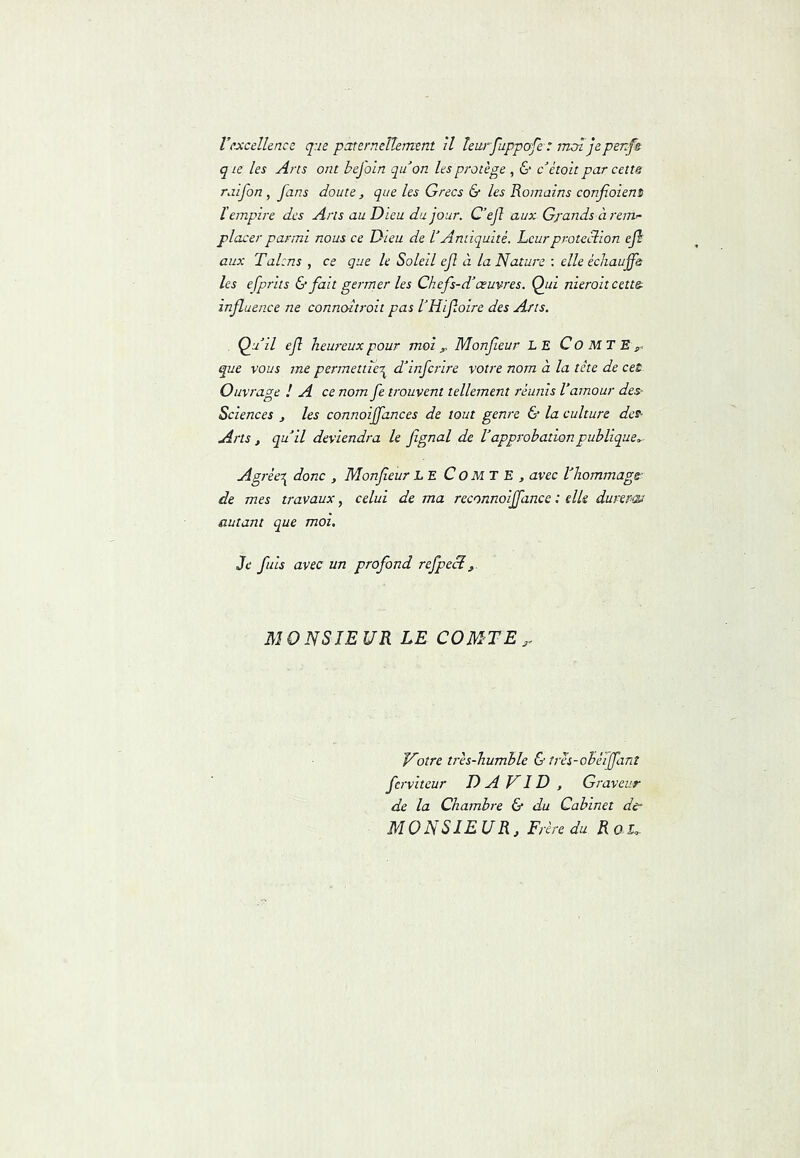 l'excellence que paternellement il leur suppose : moi je pense
que les Arts ont besoin qu'on les protège , & c'étoit par cette
raison , sans doute , que les Grecs & les Romains confioient
l'empire des Arts au Dieu du jour. C'est aux Grands à rem-
placer parmi nous ce Dieu de l'Antiquité. Leur protection est
aux Talens , ce que le Soleil est à la Nature : elle échauffe
les esprits & fait germer les Chefs-d'œuvres. Qui nieroit cette
influence ne connoîtroit pas l'Histoire des Arts.
Qu'il est heureux pour moi , Monsieur LE COMTE ,
que vous me permettiez d'inscrire votre nom à la tête de cet
Ouvrage ! A ce nom se trouvent tellement réunis l'amour des
Sciences , les connoissances de tout genre & la culture des
Arts , qu'il deviendra le signal de l'approbation publique.
Agréez donc , Monsieur LE COMTE , avec l'hommage
de mes travaux , celui de ma reconnoissance : elle durera
autant que moi.
Je suis avec un profond respect ,
MONSIEUR LE COMTE ,
Votre très-humble & très-obéissant
serviteur DAVID , Graveur
de la Chambre & du Cabinet de
MONSIEUR , Frère du ROI.